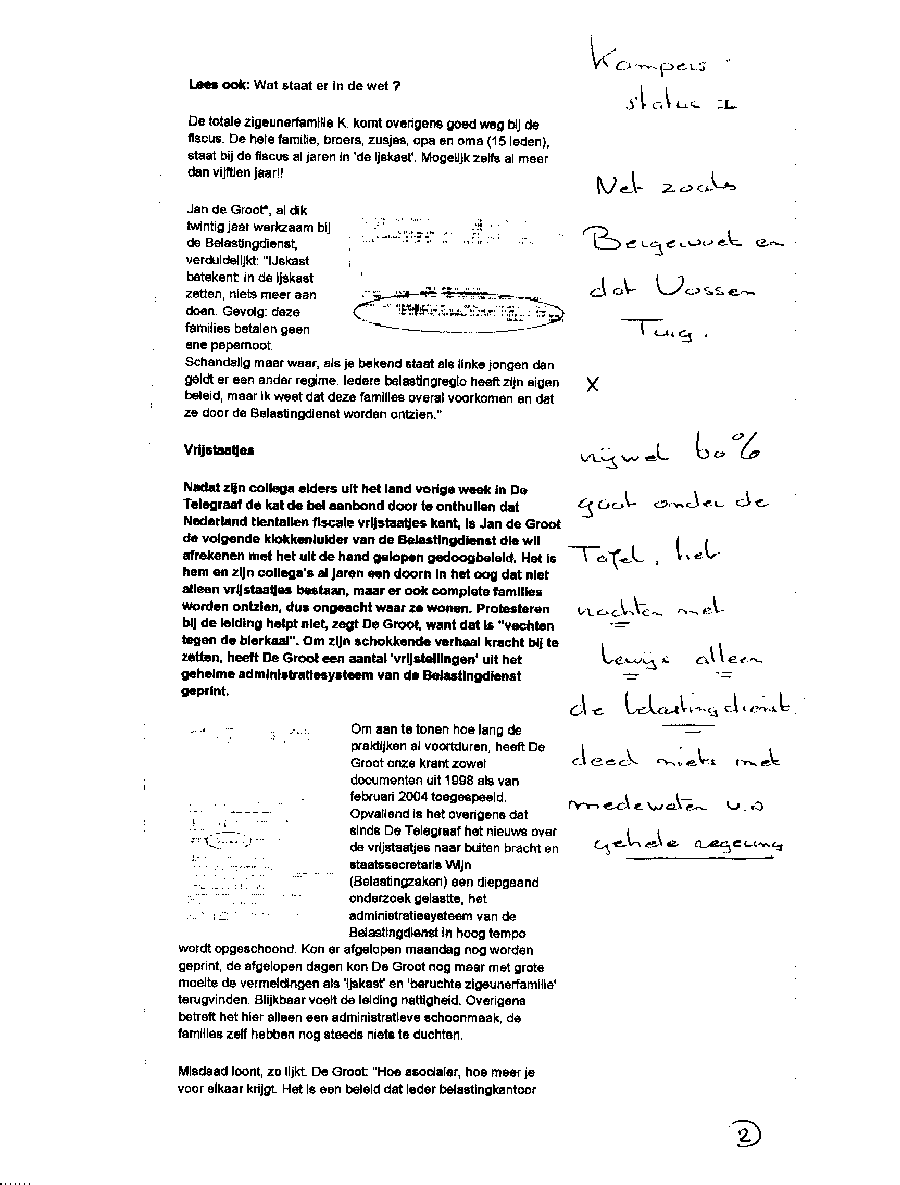 Lees ook: Wat staat er in de wet ?
De totale zigeunerfamilie K. komt overigens goed weg bij de
fiscus. De hele familie, broers, zusjes, opa en oma (15 leden),
staat bij de fiscus al jaren in 'de ijskast'. Mogelijk zelfs al meer
dan vijftien jaar!!
Jan de Groot*, al dik
twintig jaar werkzaam bij
de Belastingdienst,
verduidelijkt: "IJskast
betekent: in de ijskast
zetten, niets meer aan
doen. Gevolg: deze
families betalen geen
ene pepernoot.
Schandalig maar waar, als je bekend staat als linke jongen dan
geldt er een ander regime. Iedere belastingregio heeft zijn eigen
beleid, maar ik weet dat deze families overal voorkomen en dat
ze door de Belastingdienst worden ontzien."
Vrijstaatjes
Nadat zijn collega elders uit het land vorige week in De
Telegraaf de kat de bel aanbond door te onthullen dat
Nederland tientallen fiscale vrijstaatjes kent, is Jan de Groot
de volgende klokkenluider van de Belastingdienst die wil
afrekenen met het uit de hand gelopen gedoogbeleid. Het is
hem en zijn collega's al jaren een doorn in het oog dat niet
alleen vrijstaatjes bestaan, maar er ook complete families
worden ontzien, dus ongeacht waar ze wonen. Protesteren
bij de leiding helpt niet, zegt De Groot, want dat is "vechten
tegen de bierkaai". Om zijn schokkende verhaal kracht bij te
zetten, heeft De Groot een aantal 'vrijstellingen' uit het
geheime administratiesysteem van de Belastingdienst
geprint.
Om aan te tonen hoe lang de
praktijken al voortduren, heeft De
Groot onze krant zowel
documenten uit 1998 als van
februari 2004 toegespeeld.
Opvallend is het overigens dat
sinds De Telegraaf het nieuws over
de vrijstaatjes naar buiten bracht en
staatssecretaris Wijn
(Belastingzaken) een diepgaand
onderzoek gelastte, het
administratiesysteem van de
Belastingdienst in hoog tempo
wordt opgeschoond. Kon er afgelopen maandag nog worden
geprint, de afgelopen dagen kon De Groot nog maar met grote
moeite de vermeldingen als 'ijskast' en 'beruchte zigeunerfamilie'
terugvinden. Blijkbaar voelt de leiding nattigheid. Overigens
betreft het hier alleen een administratieve schoonmaak, de
families zelf hebben nog steeds niets te duchten.
Misdaad loont, zo lijkt. De Groot: "Hoe asocialer, hoe meer je
voor elkaar krijgt. Het is een beleid dat ieder belastingkantoor
Kampers
status
Net zoals
en
dat Vossen
Tuig.
X
vrijwel 60%
gaat onder de
Tafel, het
met
bewijs alleen
de belastingdienst.
deed niets met
medeweten v.d
gehele regering
2